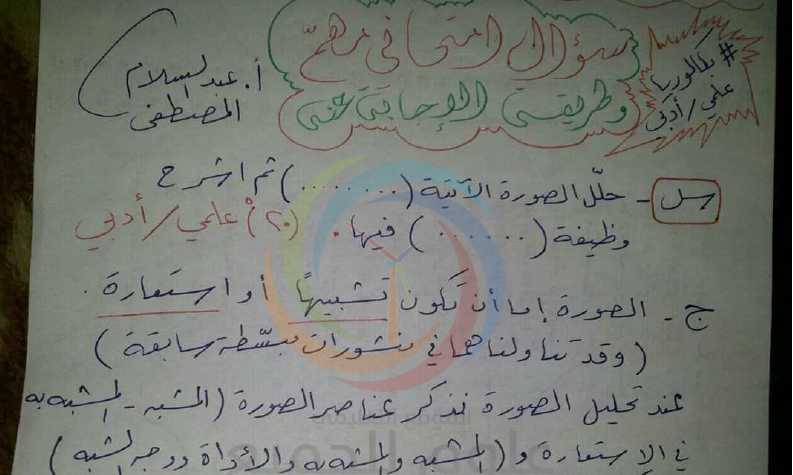 سؤال امتحاني مهمّ
وطريقة الإجابة عنه
# بكالوريا
علمي/أدبي
أ. عبد السلام
المصطفى
س - حلّل الصورة الآتية (........) ثم اشرح
وظيفة (......) فيها. (٢٠°) علمي/أدبي
ج - الصورة إما أن تكون تشبيهًا أو استعارة.
(وقد تناولناهما في منشورات مبسّطة سابقة)
عند تحليل الصورة نذكر عناصر الصورة (المشبه - المشبه به
في الاستعارة و (المشبه والمشبه به والأداة ووجه الشبه)